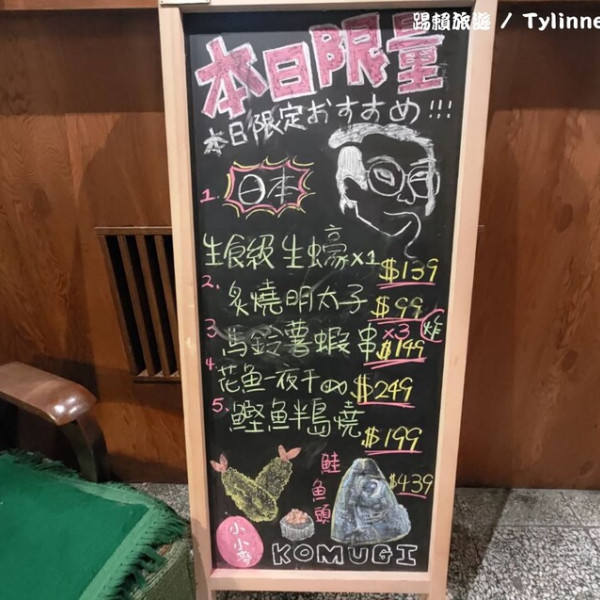 踢賴旅遊 / Tylinne
本日限量
本日限定おすすめ!!!
1. 日本
生食級生蠔x1 $139
2. 炙燒明太子 $99
3. 馬鈴薯蝦串x3 炸 $199
4. 花魚一夜干 $249
5. 鰹魚半島燒 $199
鮭魚頭 $439
小小麥
KOMUGI